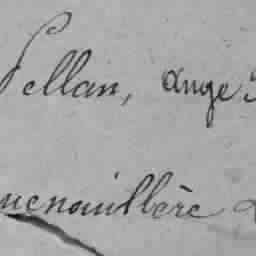 Pellan, Ange
uenouillère